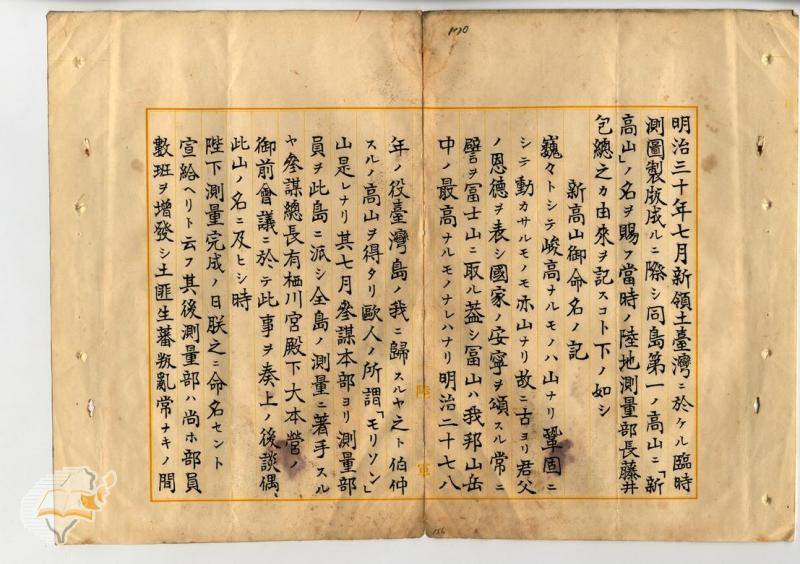 明治三十年七月新領土臺灣ニ於ケル臨時
測圖製版成ルニ際シ同島第一ノ高山ニ「新
高山」ノ名ヲ賜フ當時ノ陸地測量部長藤井
包總之カ由來ヲ記スコト下ノ如シ
新高山御命名ノ記
巍々トシテ峻高ナルモノハ山ナリ鞏固ニ
シテ動カサルモノモ亦山ナリ故ニ古ヨリ君父
ノ恩德ヲ表シ國家ノ安寧ヲ頌スル常ニ
譬ヲ冨士山ニ取ル蓋シ冨山ハ我邦山岳
中ノ最高ナルモノナレハナリ明治二十七八
年ノ役臺灣島ノ我ニ歸スルヤ之ト伯仲
スルノ高山ヲ得タリ歐人ノ所謂「モリソン」
山是レナリ其七月參謀本部ヨリ測量部
員ヲ此島ニ派シ全島ノ測量ニ著手スル
ヤ參謀總長有栖川宮殿下大本營ノ
御前會議ニ於テ此事ヲ奏上ノ後談偶、
此山ノ名ニ及ヒシ時
陛下測量完成ノ日朕之ニ命名セント
宣給ヘリト云フ其後測量部ハ尚ホ部員
數班ヲ增發シ土匪生蕃叛亂常ナキノ間
陸軍
170
156